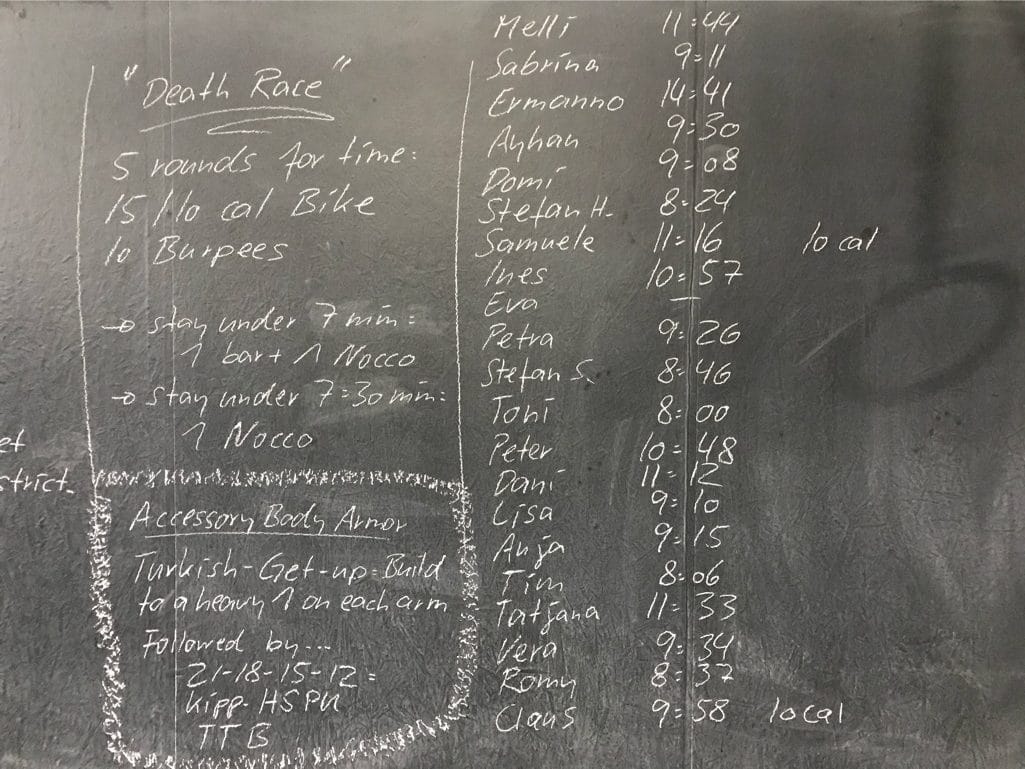 "Death Race"
5 rounds for time:
15/10 cal Bike
10 Burpees
→ stay under 7 min:
1 bar + 1 Nocco
→ stay under 7:30 min:
1 Nocco
et
strict.
Accessory Body Armor
Turkish-Get-up: Build
to a heavy 1 on each arm
Followed by...
21-18-15-12:
Kipp. HSPU
TTB
Melli 11:44
Sabrina 9:11
Ermanno 14:41
Ayhan 9:30
Domi 9:08
Stefan H. 8:24
Samuele 11:16 10 cal
Ines 10:57
Eva —
Petra 9:26
Stefan S. 8:46
Toni 8:00
Peter 10:48
Dani 11:12
Lisa 9:10
Anja 9:15
Tim 8:06
Tatjana 11:33
Vera 9:34
Romy 8:37
Claus 9:58 10 cal